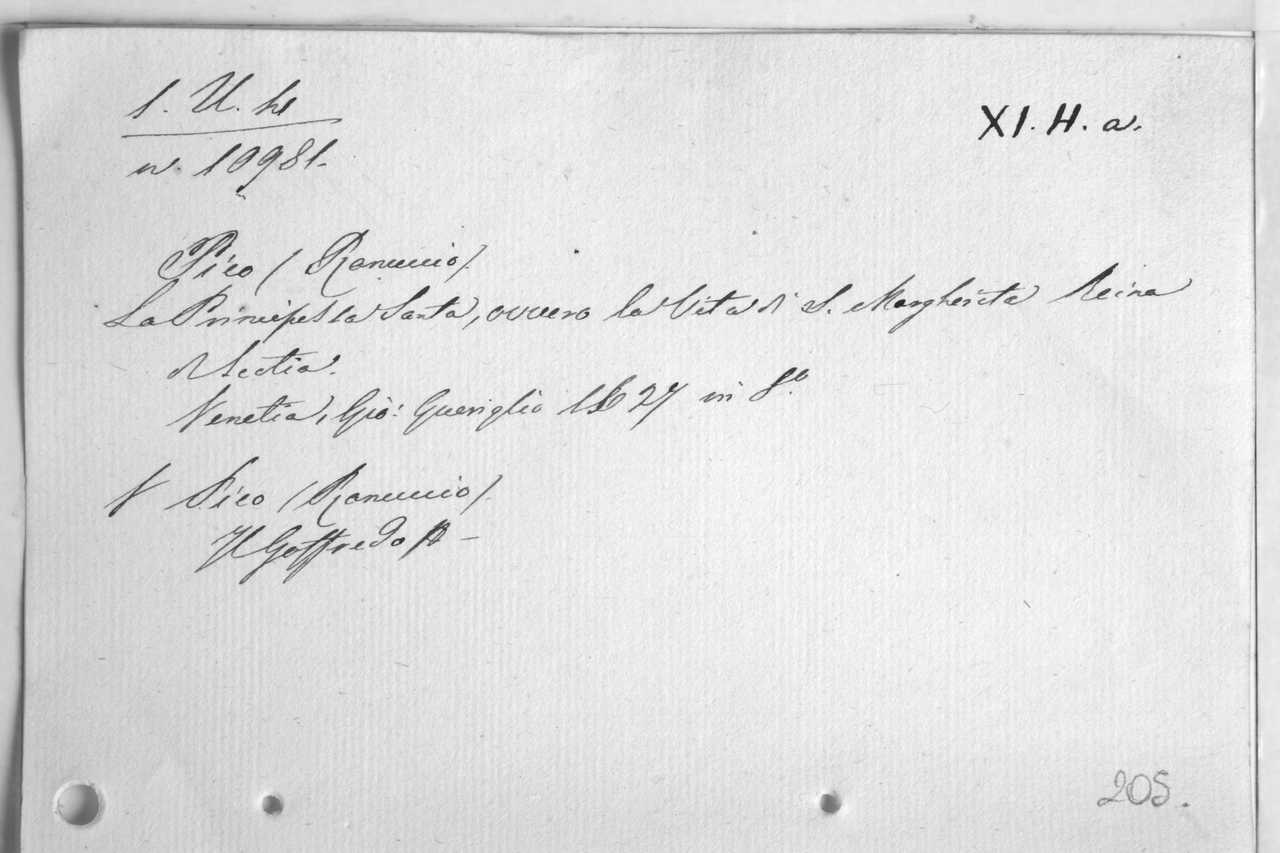 1. U. h1
XI. H. a.
n. 10981.
Pico (Ranuccio)
La Principessa Santa, ovvero la Vita di S. Margherita Reina
di Scotia.
Venetia, Gio: Gueriglio 1627 in 8.º
V Pico (Ranuccio)
Il Goffredo
205.